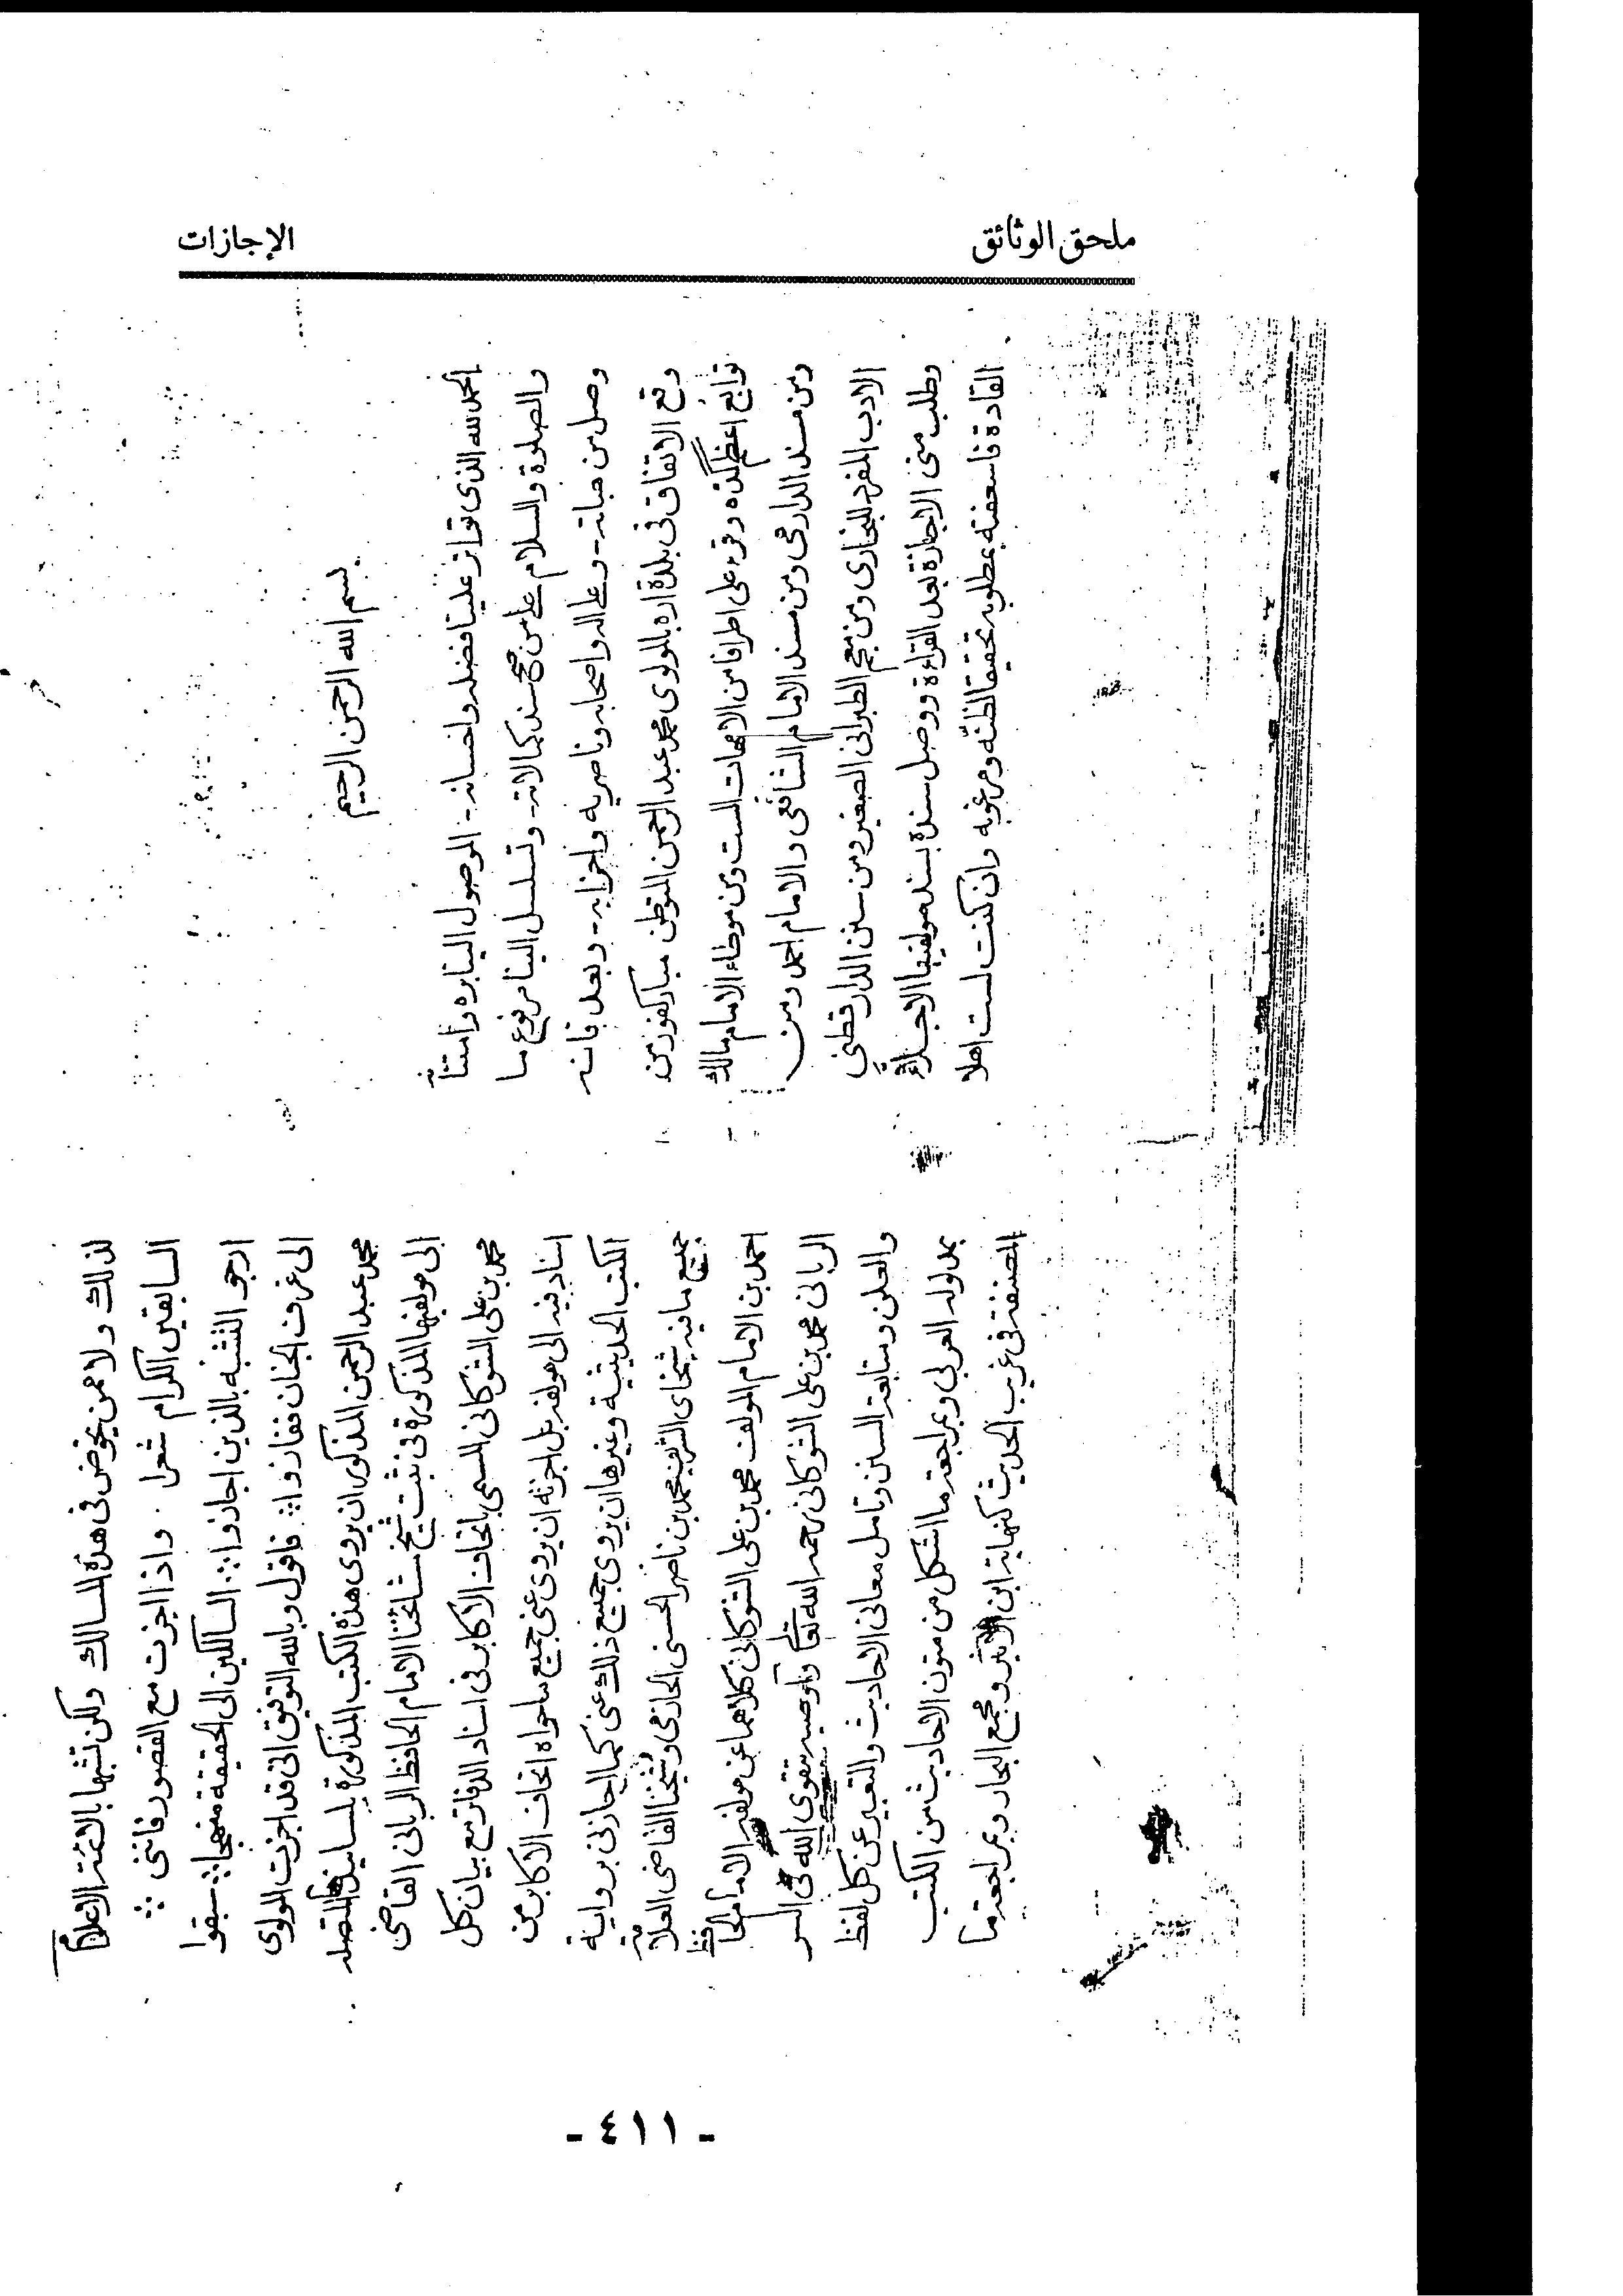 ملحق الوثائق
الإجازات
بسم الله الرحمن الرحيم
الحمد لله الذى تواتر علينا فضله واحسانه - الموصول الينا بره وامتنانه
والصلوة والسلام على من صح سند كمالاته - وتسلسل الينا مرفوع ما
وصل من هباته - وعلى اله واصحابه وناصريه واحزابه - وبعد فانه
وقع الاتفاق فى بلدة اره بالمولوى محمد عبد الرحمن المتوطن مباركفور من
توابع اعظم گده وقرء على اطرافا من الامهات الست ومن موطاء الامام مالك
ومن مسند الدارمى ومن مسند الامام الشافعى والامام احمد ومن
الادب المفرد للبخارى ومن معجم الطبرانى الصغير ومن سنن الدارقطنى
وطلب منى الاجازة بعد القراءة ووصل سنده بسند مولفيها الاجلاء
القادة فاسعفته بمطلوبه تحقيقا لظنه ومرغوبه وان كنت لست اهلا
لذلك ولا ممن يخوض فى هذه المسالك ولكن تشبها بالائمة الاعلام
السابقين الكرام شعر . واذا اجزت مع القصور فاننى ؞
ارجو التشبه بالذين اجازوا ؞ السالكين الى الحقيقة منهجا ؞ سبقوا
الى غرف الجنان ففازوا ؞ فاقول وبالله التوفيق انى قد اجزت المولوى
محمد عبد الرحمن المذكور ان يروى هذه الكتب المذكورة باسانيدها المتصلة
الى مولفيها المذكورة فى ثبت شيخ مشائخنا الامام الحافظ الربانى القاضى
محمد بن على الشوكانى المسمى باتحاف الاكابر فى اسناد الدفاتر مع بيان كل
اسناد فيه الى مولفه بل اجزته ان يروى عنى جميع ما حواه اتحاف الاكابر من
الكتب الحديثية وغيرها ان يروى جميع ذلك عنى كما اجازنى برواية
جميع ما فيه شيخاى الشريف محمد بن ناصر الحسنى الحازمى وشيخنا القاضى العلامة
احمد بن الامام المولف محمد بن على الشوكانى كلاهما عن مولفه الامام الحافظ
الربانى محمد بن على الشوكانى رحمه الله تعالى وأوصيه بتقوى الله فى السر
والعلن ومتابعة السنن وتامل معانى الاحاديث والتعبير عن كل لفظ
بمدلوله العربى وبمراجعة ما اشكل من متون الاحاديث من الكتب
المصنفة فى غريب الحديث كنهاية ابن الاثير ومجمع البحار وبمراجعة ما
- ٤١١ -